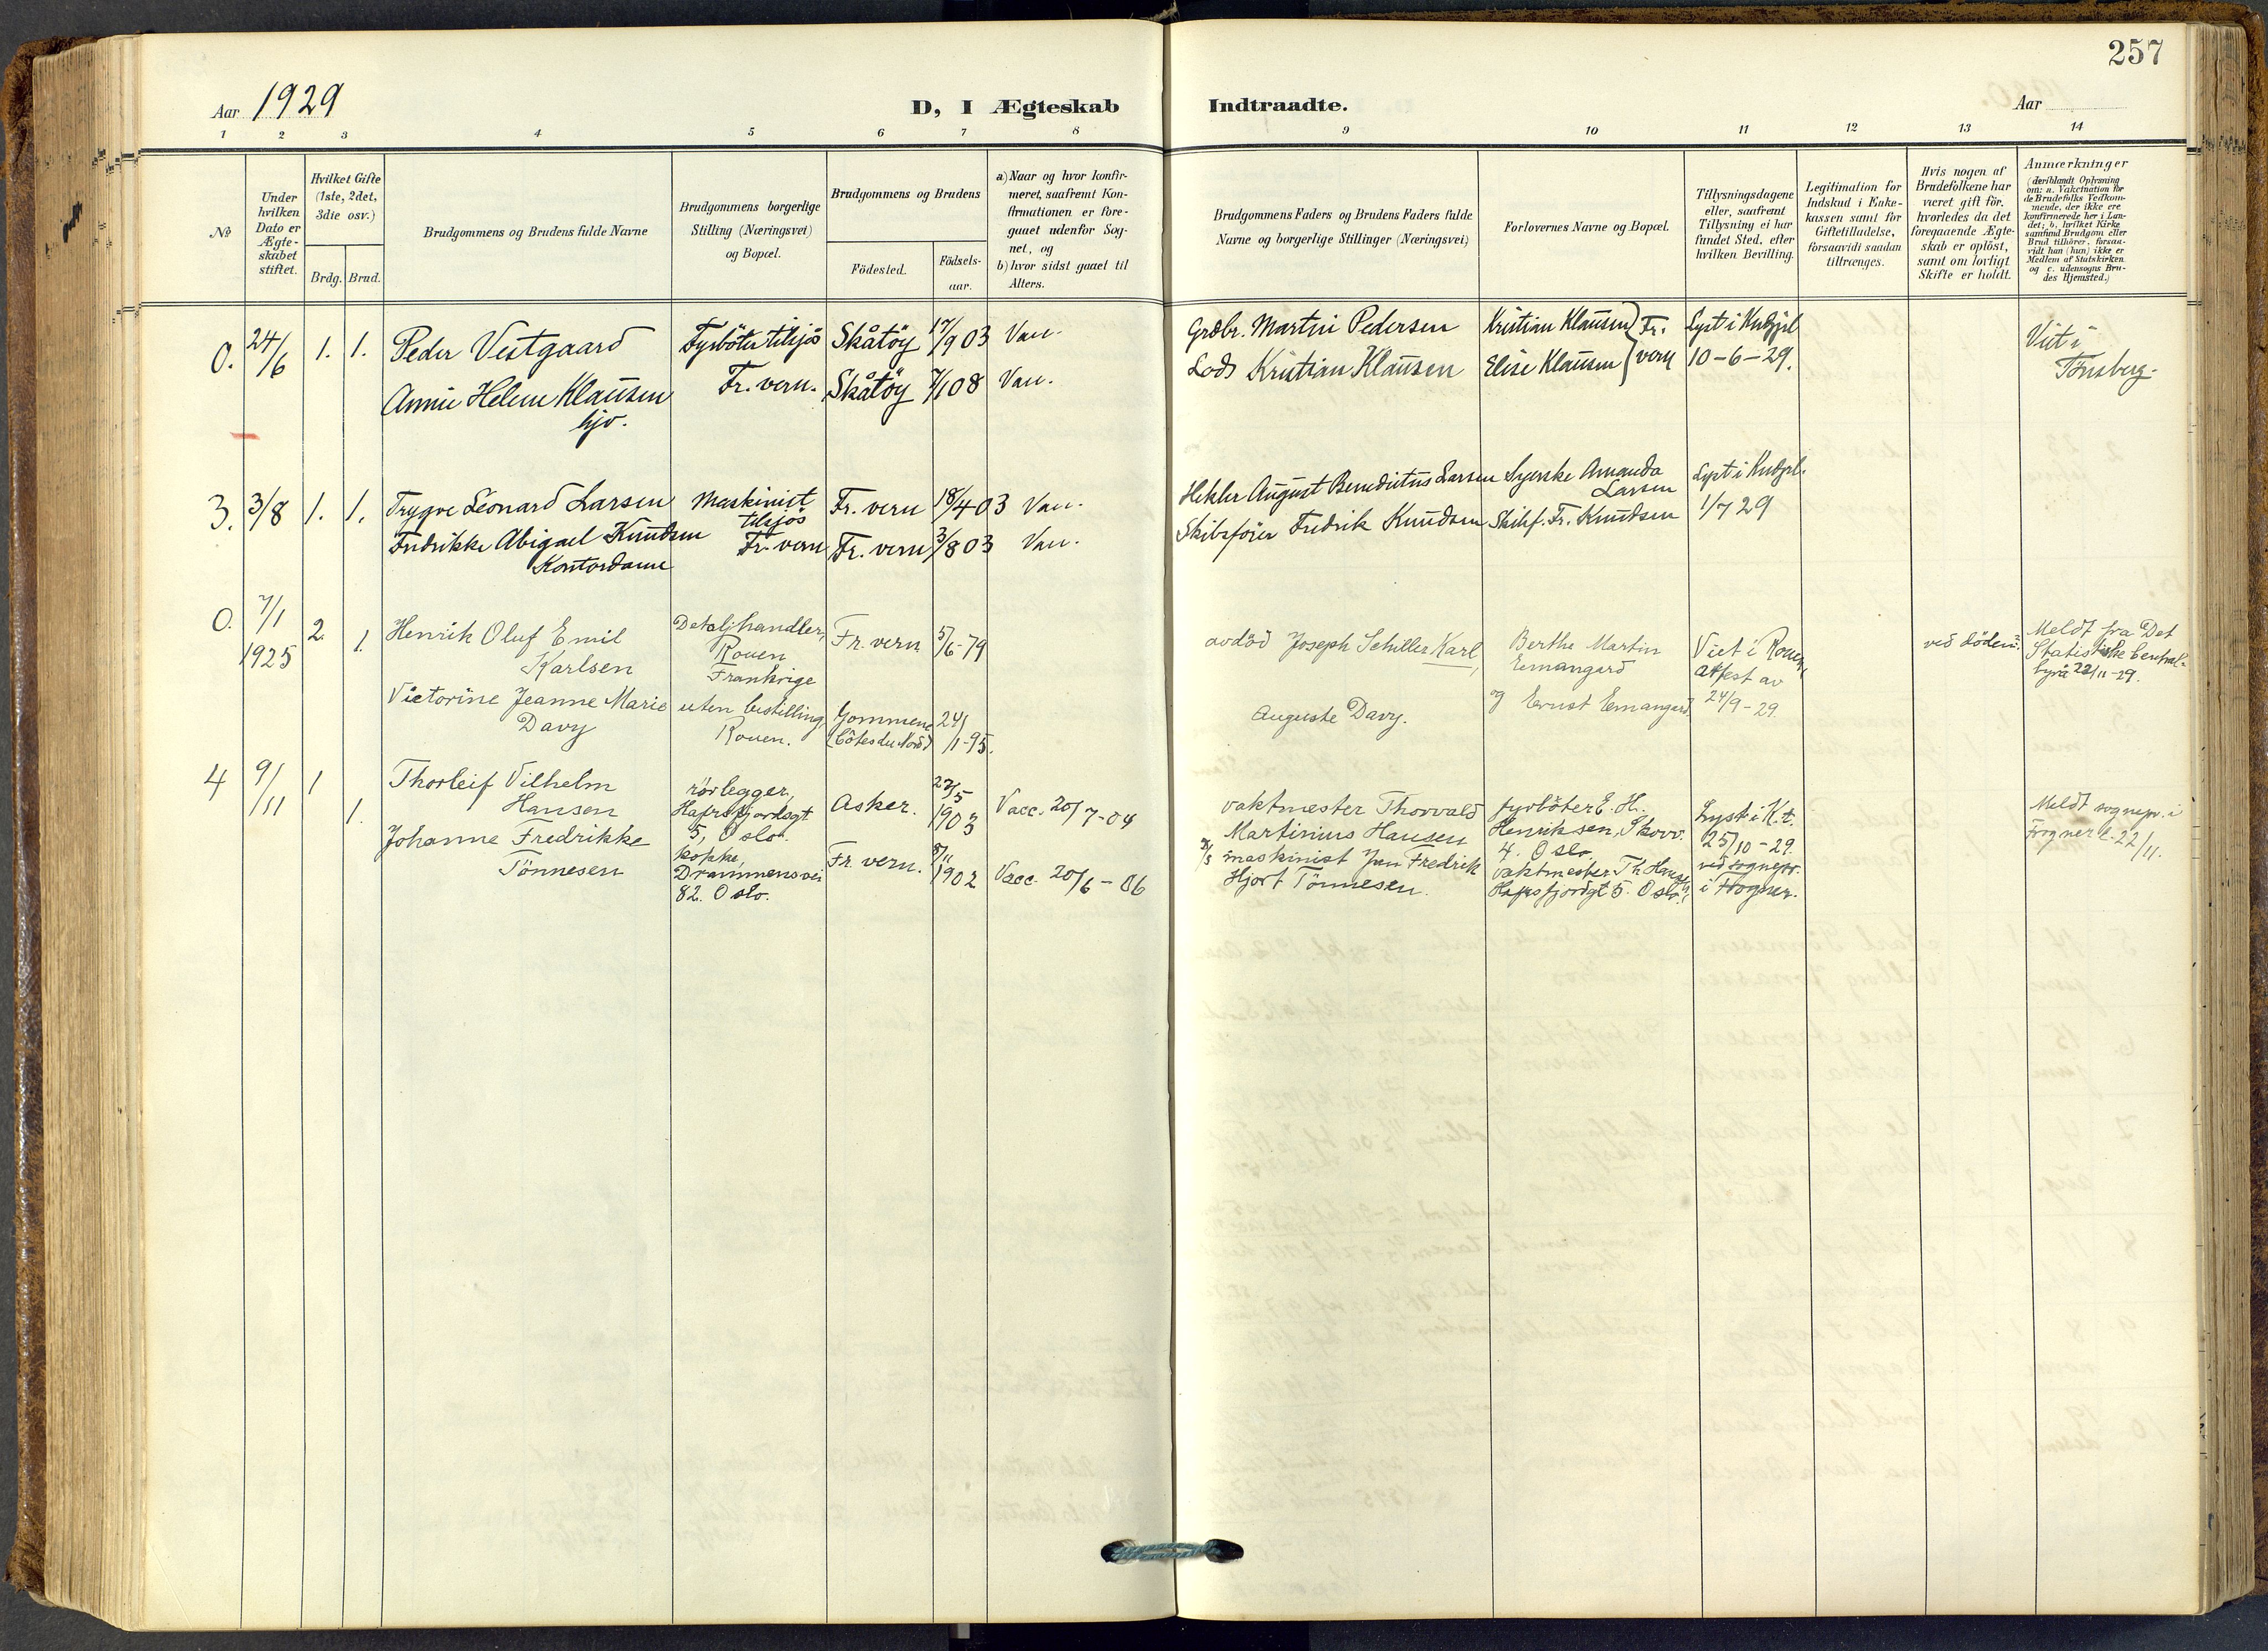 257
Aar 1929
D, I Ægteskab
Indtraadte.
Aar
1 2 3 4 5 6 7 8
9 10 11 12 13 14
No
Under
hvilken
Dato er
Ægte-
skabet
stiftet.
Hvilket Gifte
(1ste, 2det,
3die osv.)
Brdg. Brud.
Brudgommens og Brudens fulde Navne
Brudgommens borgerlige
Stilling (Næringsvei)
og Bopæl.
Brudgommens og Brudens
Födested.
Födsels-
aar.
a) Naar og hvor konfir-
meret, saafremt Kon-
firmationen er fore-
gaaet udenfor Sog-
net, og
b) hvor sidst gaaet til
Alters.
Brudgommens Faders og Brudens Faders fulde
Navne og borgerlige Stillinger (Næringsvei)
Forlovernes Navne og Bopæl.
Tillysningsdagene
eller, saafremt
Tillysning ei har
fundet Sted, efter
hvilken Bevilling.
Legitimation for
Indskud i Enke-
kassen samt for
Giftetilladelse,
forsaavidt saadan
tiltrænges.
Hvis nogen af
Brudefolkene har
været gift för,
hvorledes da det
foregaaende Ægte-
skab er oplöst,
samt om lovligt
Skifte er holdt.
Anmærkninger
(deriblandt Oplysning
om: a. Vakcination for
de Brudefolks Vedkom-
mende, der ikke ere
konfirmerede her i Lan-
det; b. hvilket Kirke-
samfund Brudgom eller
Brud tilhörer, forsaa-
vidt han (hun) ikke er
Medlem af Statskirken
og c. udensogns Bru-
des Hjemsted.)
0. 24/6 1. 1. Peder Vestgaard
Fyrböter tilsjös
Skåtöy 17/9 03 Vac.
Annie Helene Klausen
hjv.
Fr. vern.
Skåtöy 7/1 08 Vac.
Grdbr. Martin Pedersen
Lods Kristian Klausen
Kristian Klausen } Fr.
Elise Klausen } vern
Lyst i Kndgpl
10-6-29.
Viet i
Tönsberg.
3. 3/8 1. 1. Trygve Leonard Larsen
Maskinist
tilsjös
Fr. vern 18/4 03 Vac.
Fredrikke Abigael Knudsen
Kontordame
Fr. vern
Fr. vern 3/8 03 Vac.
Hekler August Benedictus Larsen
Skibsförer Fredrik Knudsen
Syerske Amanda
Larsen
Skibsf. Fr. Knudsen
Lyst i Kndgpl.
1/7 29
0. 7/1
1925
2. 1. Henrik Oluf Emil
Karlsen
Detaljhandler,
Rouen
Frankrige
Fr. vern 5/6-79
Victorine Jeanne Marie
Davy
uten bestilling
Rouen.
Gommene
(Côtes du Nord)
24/1-95.
avdöd Joseph Schiller Karl,
Auguste Davy.
Berthe Martin
Ermangard
og Ernst Ermangard
Viet i Rouen,
attest av
24/9-29.
ved döden?
Meldt fra Det
Statistiske Central-
byrå 22/11-29.
4 9/11 1 1. Thorleif Vilhelm
Hansen
rörlegger,
Hafrsfjordsgt
5, Oslo.
Asker. 27/5
1903
Vacc. 20/7-04
Johanne Fredrikke
Tönnesen
kokke,
Drammensvei
82. Oslo.
Fr. vern. 8/11
1902
Vacc. 20/6-06
vaktmester Thorvald
Martinius Hansen
maskinist Jan Fredrik
Hjort Tönnesen.
fyrböter E. H.
Henriksen, Skovv.
4. Oslo
vaktmester Th Hansen
Hafrsfjordgt 5. Oslo.
Lyst i K.t.
25/10-29.
ved sognepr.
i Frogner.
Meldt sognepr. i
Frogner 22/11.